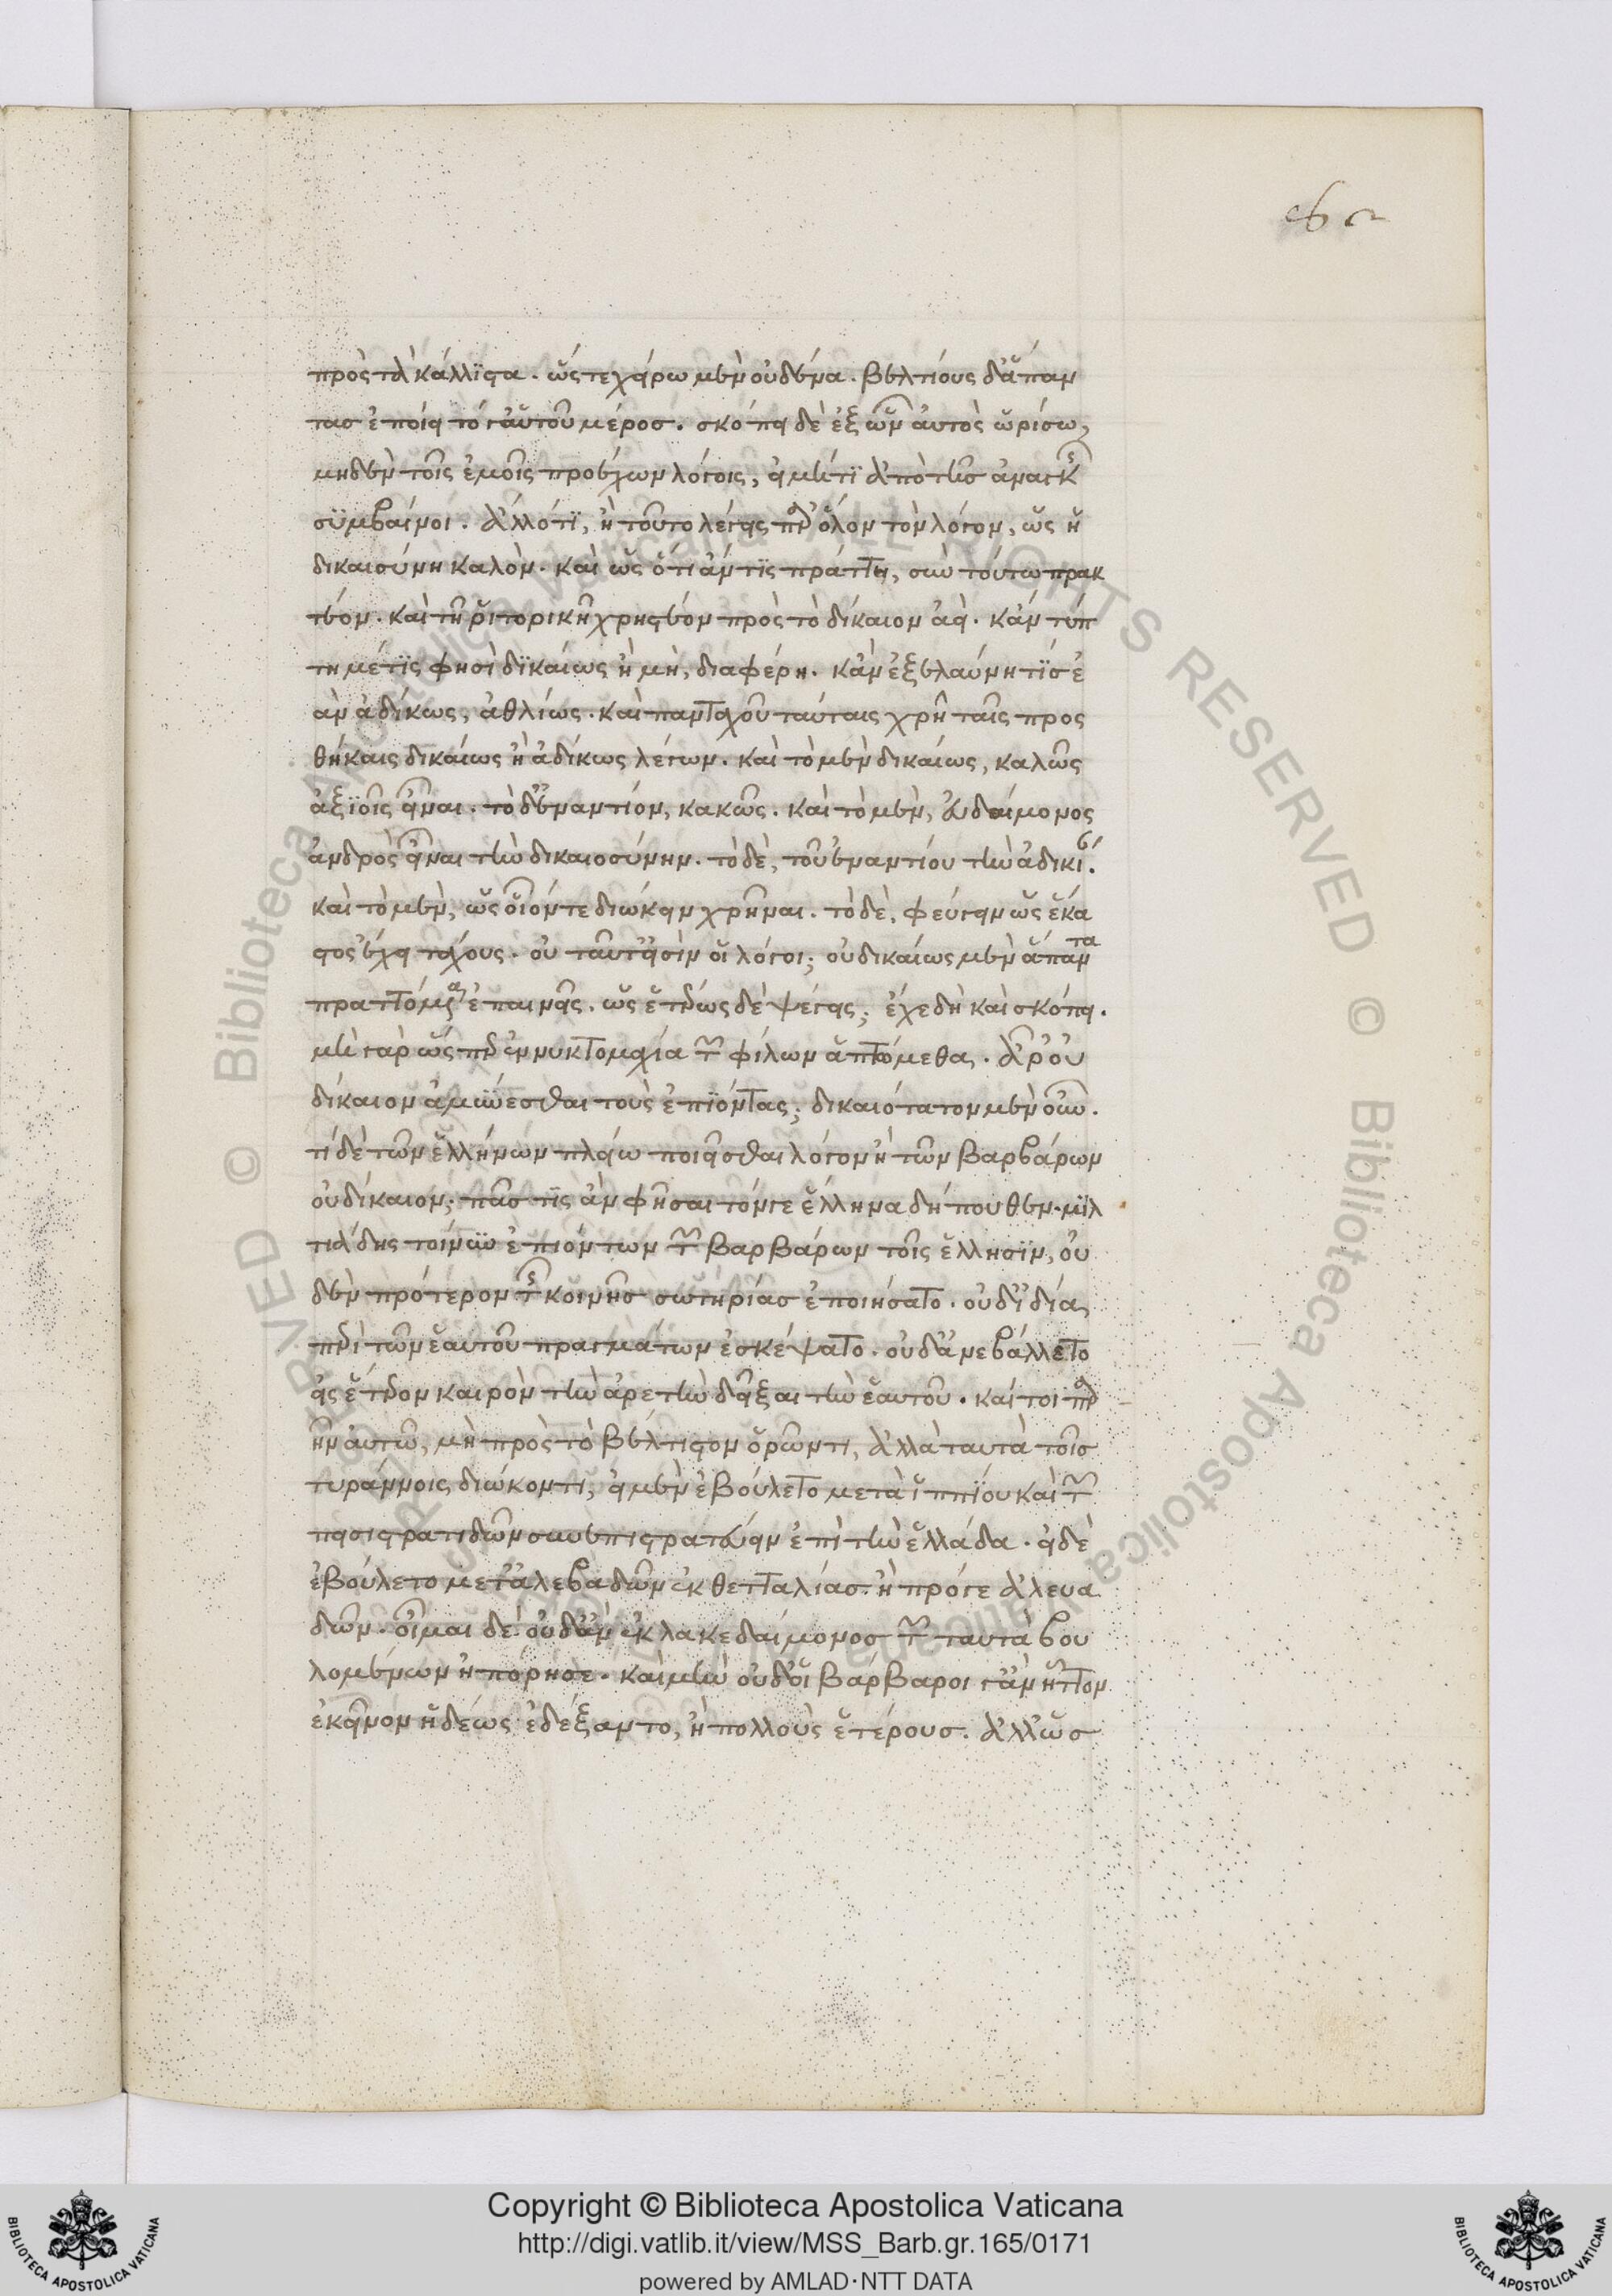 πρὸς τὰ κάλλϊστα. ὥστε χείρω μὲν οὐδένα. βελτίους δ' ἅπαν
τας ἐποίει τό γ' αὑτοῦ μέρος. σκόπει δὲ ἐξ ὧν αὐτὸς ὡρίσω,
μηδὲν τοῖς ἐμοῖς προσέχων λόγοις, εἰ μή τϊ ἀπὸ τῆς ἀνάγκης
συμβαίνοι. ἄλλό τϊ, ἢ τοῦτο λέγεις παρ' ὅλον τὸν λόγον, ὡς ἡ
δικαιοσύνη καλὸν. καὶ ὡς ὅτι ἄν τϊς πράττη, σὺν τούτω πρακ
τέον. καὶ τῆ ῥιτορικῆ χρηστέον πρὸς τὸ δίκαιον ἀεὶ. κἄν τύπ
τη μέ τϊς φησὶ δϊκαίως ἢ μὴ, διαφέρη. κἂν ἐξελαύνη τίς ἐ
ὰν ἀδίκως, ἀθλίως. καὶ πανταχοῦ ταύταις χρῆ ταῖς προς
θήκαις δικαίως ἢ ἀδίκως λέγων. καὶ τὸ μὲν δικαίως, καλῶς
ἀξϊοῖς εἶναι. τὸ δ' ἐναντίον, κακῶς. καὶ τὸ μὲν, εὐδαίμονος
ἀνδρὸς εἶναι τὴν δικαιοσύνην. τὸ δὲ, τοῦ ἐναντίου τὴν ἀδικί.
καὶ τὸ μὲν, ὡς οἷόν τε διώκειν χρῆναι. τὸ δὲ, φεύγειν ὡς ἕκα
στος ἔχει τάχους. οὐ ταῦτ' εἰσὶν οἱ λόγοι; οὐ δικαίως μὲν ἅπαντα
πραττόμενα ἐπαινεῖς. ὡς ἑτέρως δὲ ψέγεις; ἔχε δὴ καὶ σκόπει.
μὴ γὰρ ὥσπερ ἐν νυκτομαχία τῶν φίλων ἁπτώμεθα. ἆρ' οὐ
δίκαιον ἀμύνεσθαι τοὺς ἐπϊόντας; δικαιότατον μὲν οὖν.
τί δὲ τῶν ἑλλήνων πλείω ποιεῖσθαι λόγον ἢ τῶν βαρβάρων
οὐ δίκαιον; πᾶς τϊς ἂν φῆσαι τόν γε ἕλληνα δήπουθεν. μϊλ
τιάδης τοίνυν ἐπιόντων τῶν βαρβάρων τοῖς ἕλλησϊν, οὐ
δὲν πρότερον τῆς κοινῆς σωτηρίας ἐποιήσατο. οὐδ' ἰδία
περὶ τῶν ἑαυτοῦ πραγμάτων ἐσκέψατο. οὐδ' ἀνεβάλλετο
εἰς ἕτερον καιρὸν τὴν ἀρετὴν δεῖξαι τὴν ἑαυτοῦ. καί τοι παρ
ῆν αὐτῶ, μὴ πρὸς τὸ βέλτιστον ὁρῶντι, ἀλλὰ ταυτὰ τοῖς
τυράννοις διώκοντι, εἰ μὲν ἐβούλετο μετὰ ἱππϊου καὶ τῶν
πεισιστρατιδῶν συνεπιστρατεύειν ἐπὶ τὴν ἑλλάδα. εἰ δὲ
ἐβούλετο μετ' ἀλευαδῶν ἐκ θετταλίας ἢ πρό γε ἀλευα
δῶν. οἶμαι δὲ οὐδ' ἂν ἐκ λακεδαίμονος τῶν ταυτὰ βου
λομένων ἠπόρησε. καὶ μὴν οὐδ' οἱ βάρβαροι γ' ἂν ἧττον
ἐκεῖνον ἡδέως ἐδέξαντο, ἢ πολλοὺς ἑτέρους. ἀλλ' ὡς
Copyright © Biblioteca Apostolica Vaticana
http://digi.vatlib.it/view/MSS_Barb.gr.165/0171
powered by AMLAD·NTT DATA